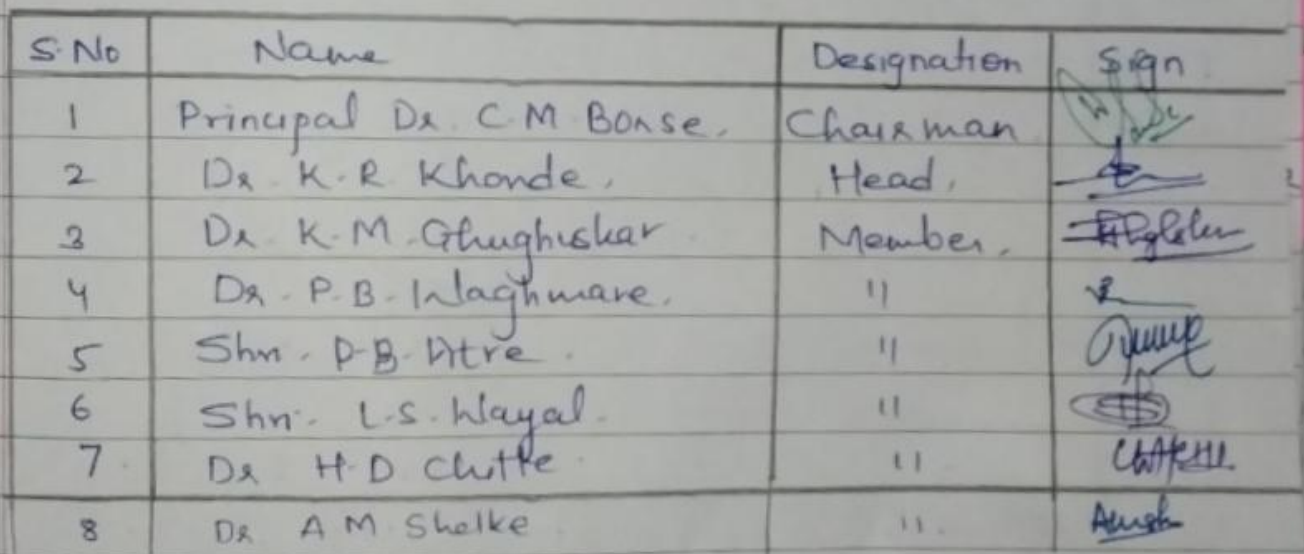 S.No Name Designation Sign
1 Principal Dr. C.M Borse. Chairman
2 Dr. K.R. Khonde. Head.
3 Dr. K.M. Ghughuskar Member.
4 Dr. P.B. Waghmare. "
5 Shri. D.B. Atre. "
6 Shri. L.S. Wayal. "
7 Dr H.D Chitte "
8 Dr A M Shelke "